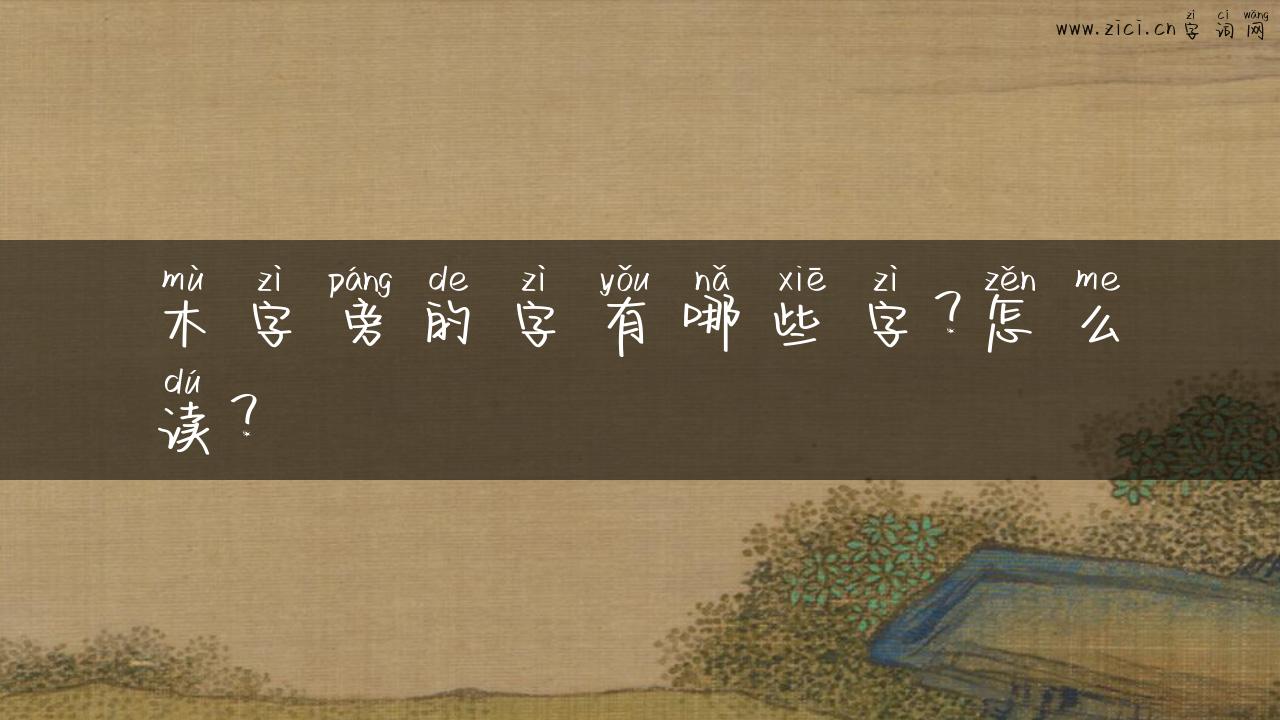 zì cí wǎng
www.zici.cn字词网
mù zì páng de zì yǒu nǎ xiē zì zěn me
木字旁的字有哪些字？怎么
dú
读？